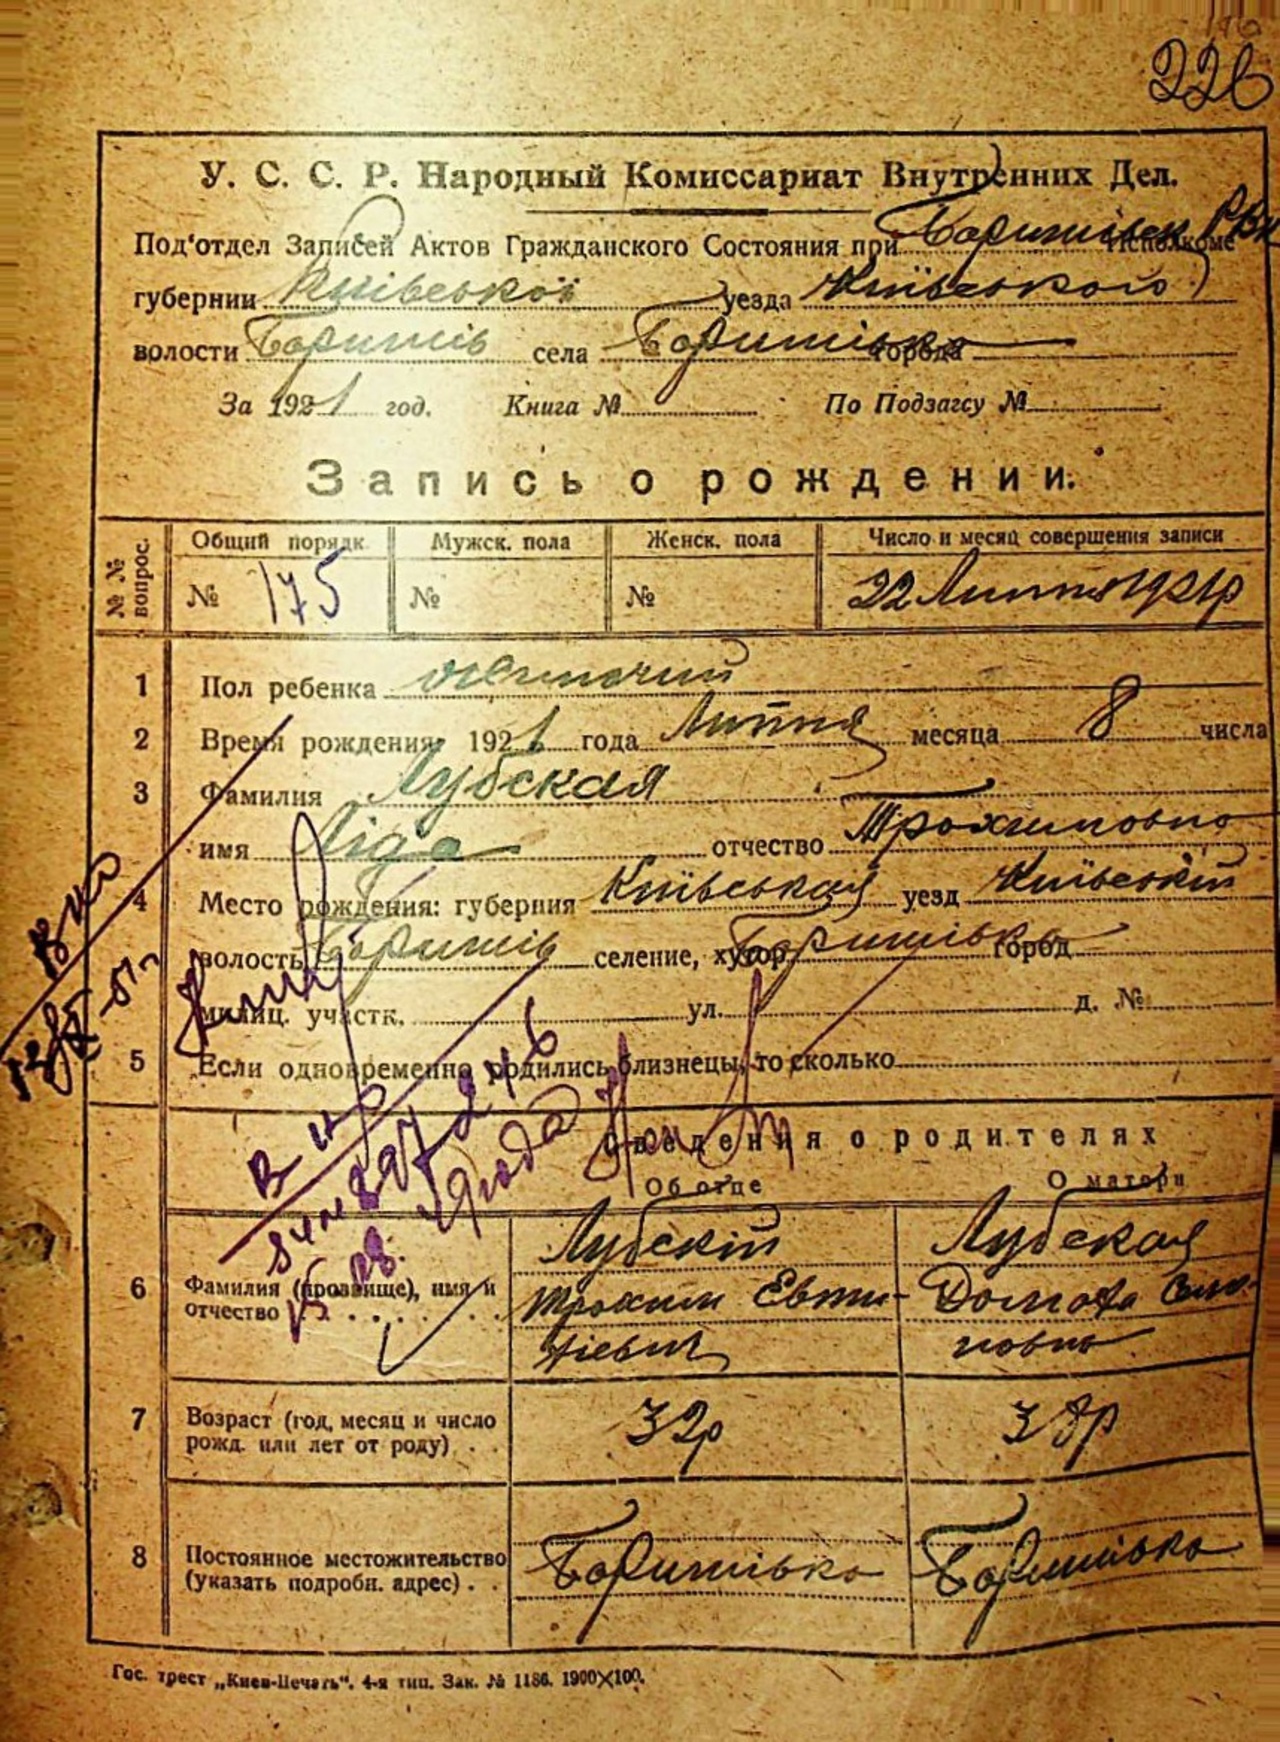 226
У. С. С. Р. Народный Комиссариат Внутренних Дел.
Под'отдел Записей Актов Гражданского Состояния при Баришівск РВК Исполкоме
губернии Київськоі уезда Київського
волости Баришів села Баришівка города
За 1921 год. Книга № По Подзагсу №
Запись о рождении.
№ № вопрос. Общий порядк. Мужск. пола Женск. пола Число и месяц совершения записи
№ 175 № № 22 Липня 1921р
1 Пол ребенка жиночий
2 Время рождения: 1921 года Липня месяца 8 числа
3 Фамилия Лубская
имя Ліда отчество Трохимовна
4 Место рождения: губерния Київськая уезд Київській
волость Баришів селение, хутор Баришівка город
милиц. участк. ул. д. №
5 Если одновременно родились близнецы, то сколько
Сведения о родителях
Об отце О матери
Лубскій Лубская
6 Фамилия (прозвище), имя и отчество Трохим Евти-
7 Возраст (год, месяц и число рожд. или лет от роду) 32р 38р
8 Постоянное местожительство (указать подробн. адрес) Баришівка Баришівка
Гос. трест „Киев-Печать". 4-я тип. Зак. № 1186. 1900×100.